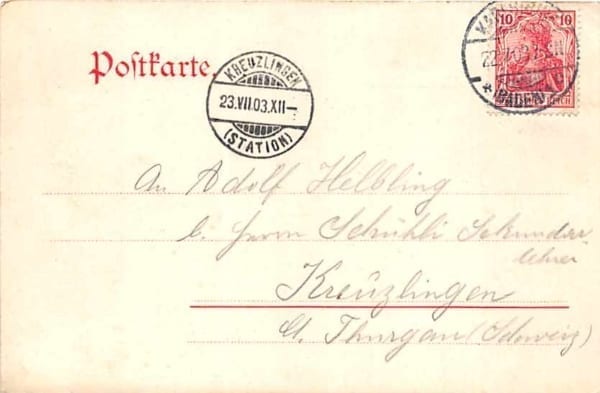 Postkarte.
KREUZLINGEN
23.VII.03.XII—
(STATION)
10 10
(BADEN)
REICH
An Adolf Helbling
b. Herrn Schühli Sekundar
lehrer
Kreuzlingen
Ct. Thurgau (Schweiz)